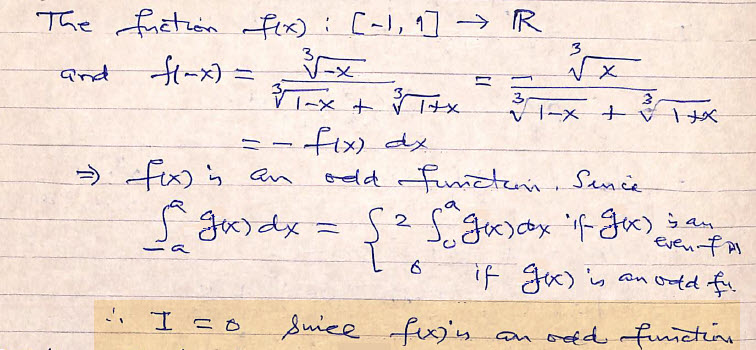 The fuction f(x) : [-1, 1] → ℝ
and f(-x) = ∛(-x) / (∛(1-x) + ∛(1+x)) = - ∛x / (∛(1-x) + ∛(1+x))
= - f(x) dx
⇒ f(x) is an odd function. Since
∫_{-a}^{a} g(x) dx = { 2 ∫_0^a g(x) dx if g(x) is an even fn
0 if g(x) is an odd fn.
∴ I = 0 Since f(x) is an odd function